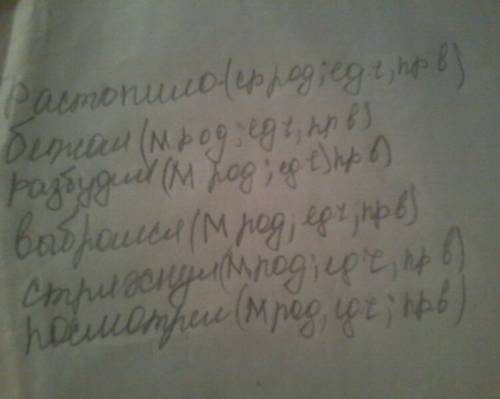 растопило (ср род; ед ч, пр в)
бежал (м род; ед ч, пр в)
разбудил (м род; ед ч) пр в)
выбрался (м род; ед ч, пр в)
стряхнул (м род; ед ч, пр в)
посмотрел (м род, ед ч; пр в)